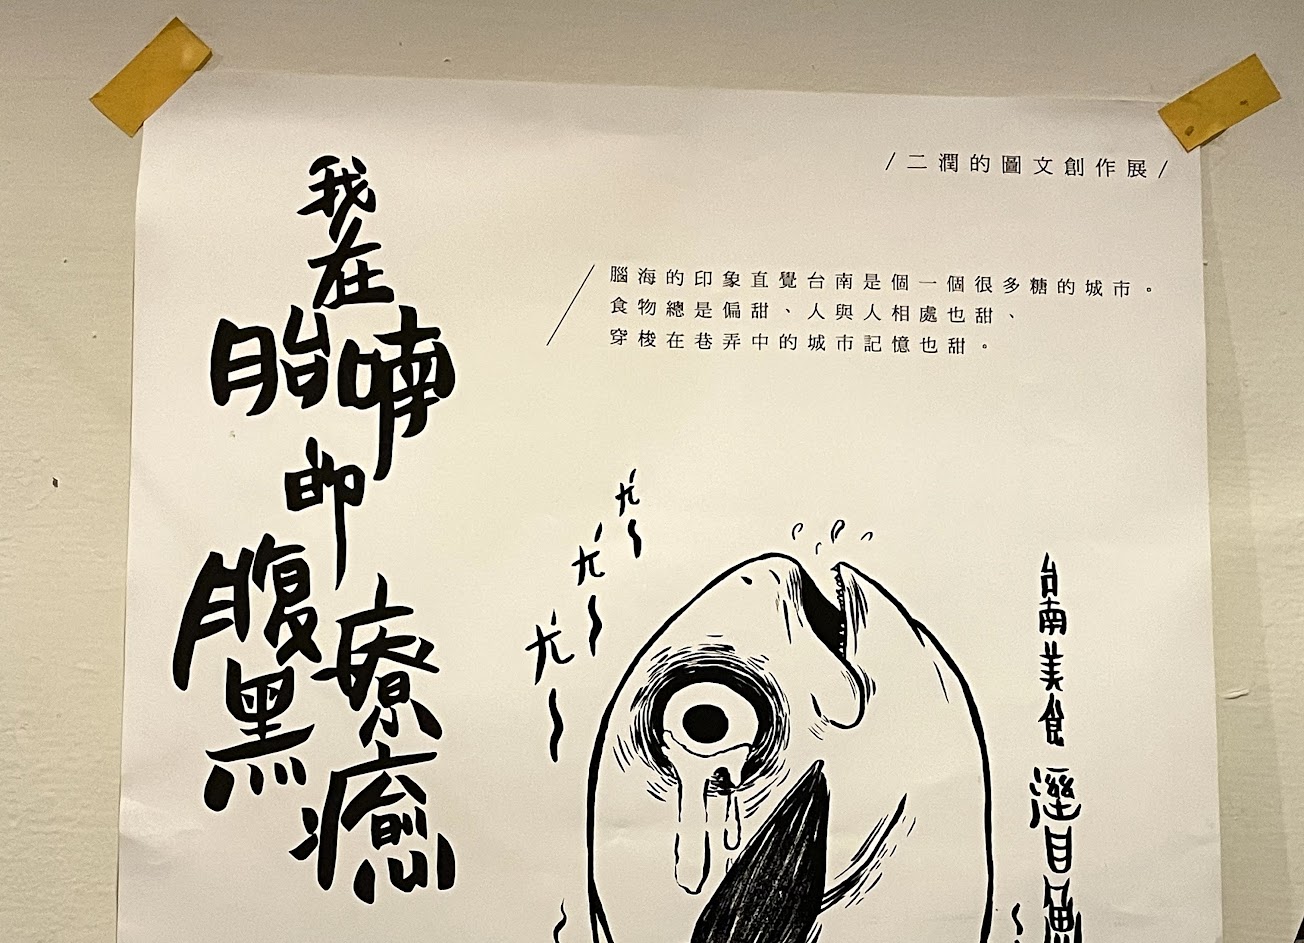 我在
胎喃
的
腹黑
療癒
/二潤的圖文創作展/
腦海的印象直覺台南是個一個很多糖的城市。
食物總是偏甜、人與人相處也甜、
穿梭在巷弄中的城市記憶也甜。
ㄤˊ~
ㄤˊ~
ㄤˊ~
台南美食 溼目魚